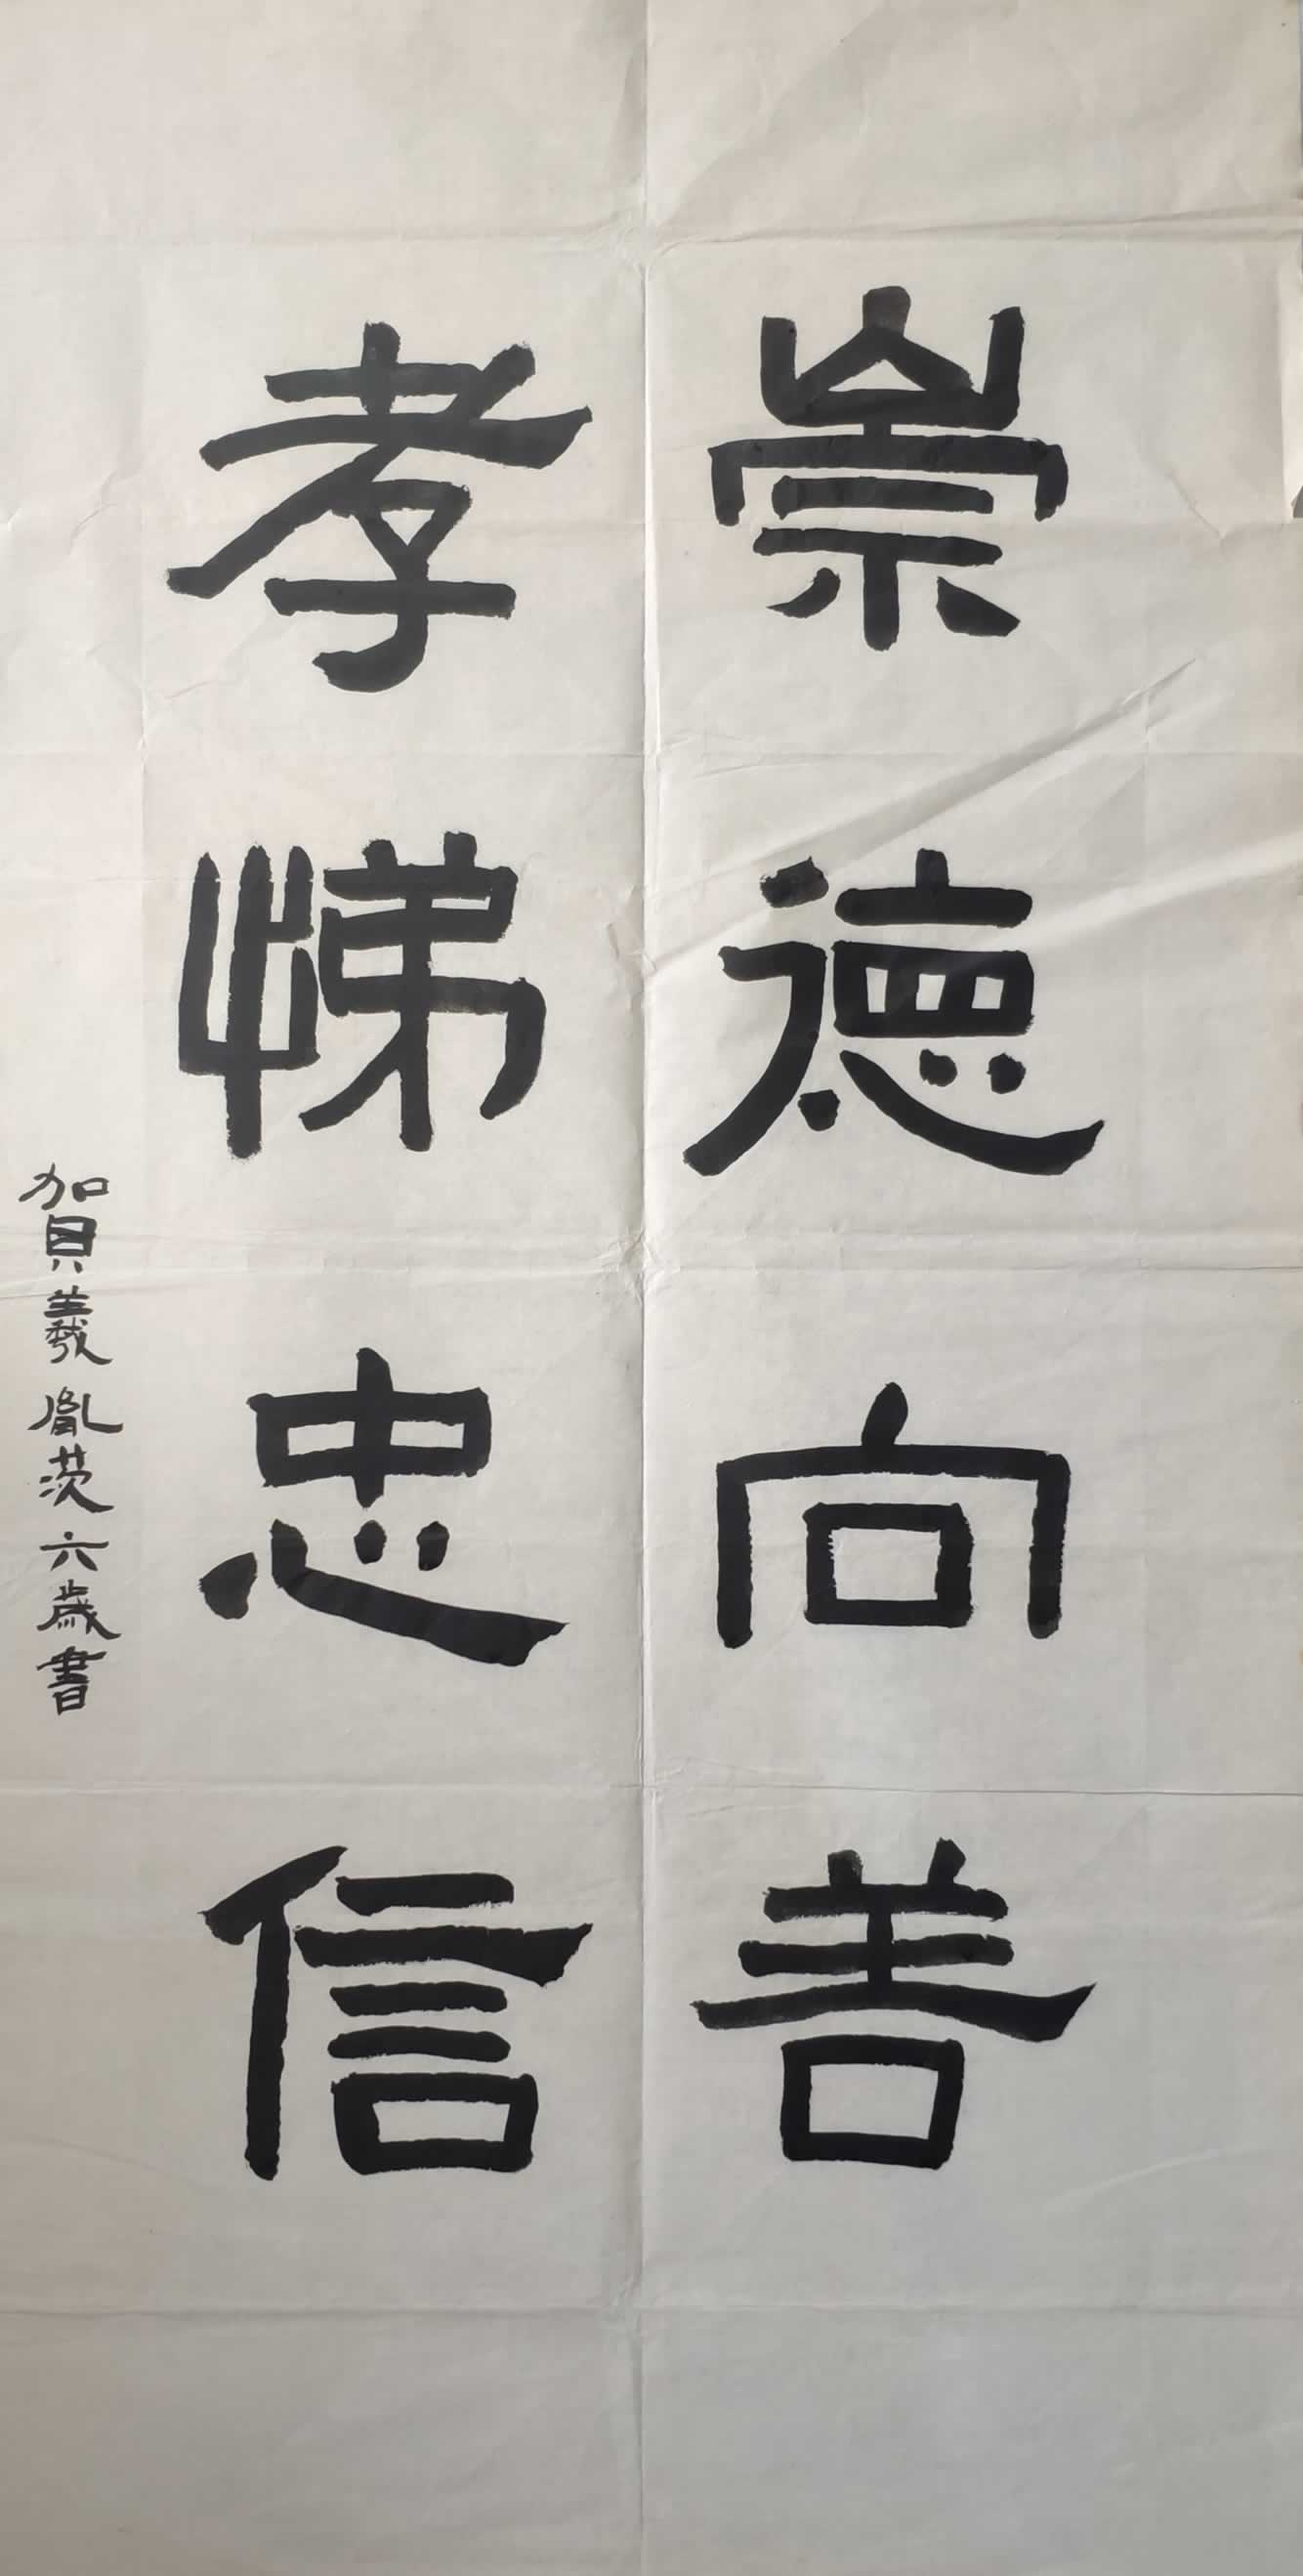 崇德向善
孝悌忠信
賀義胤茨六歲書